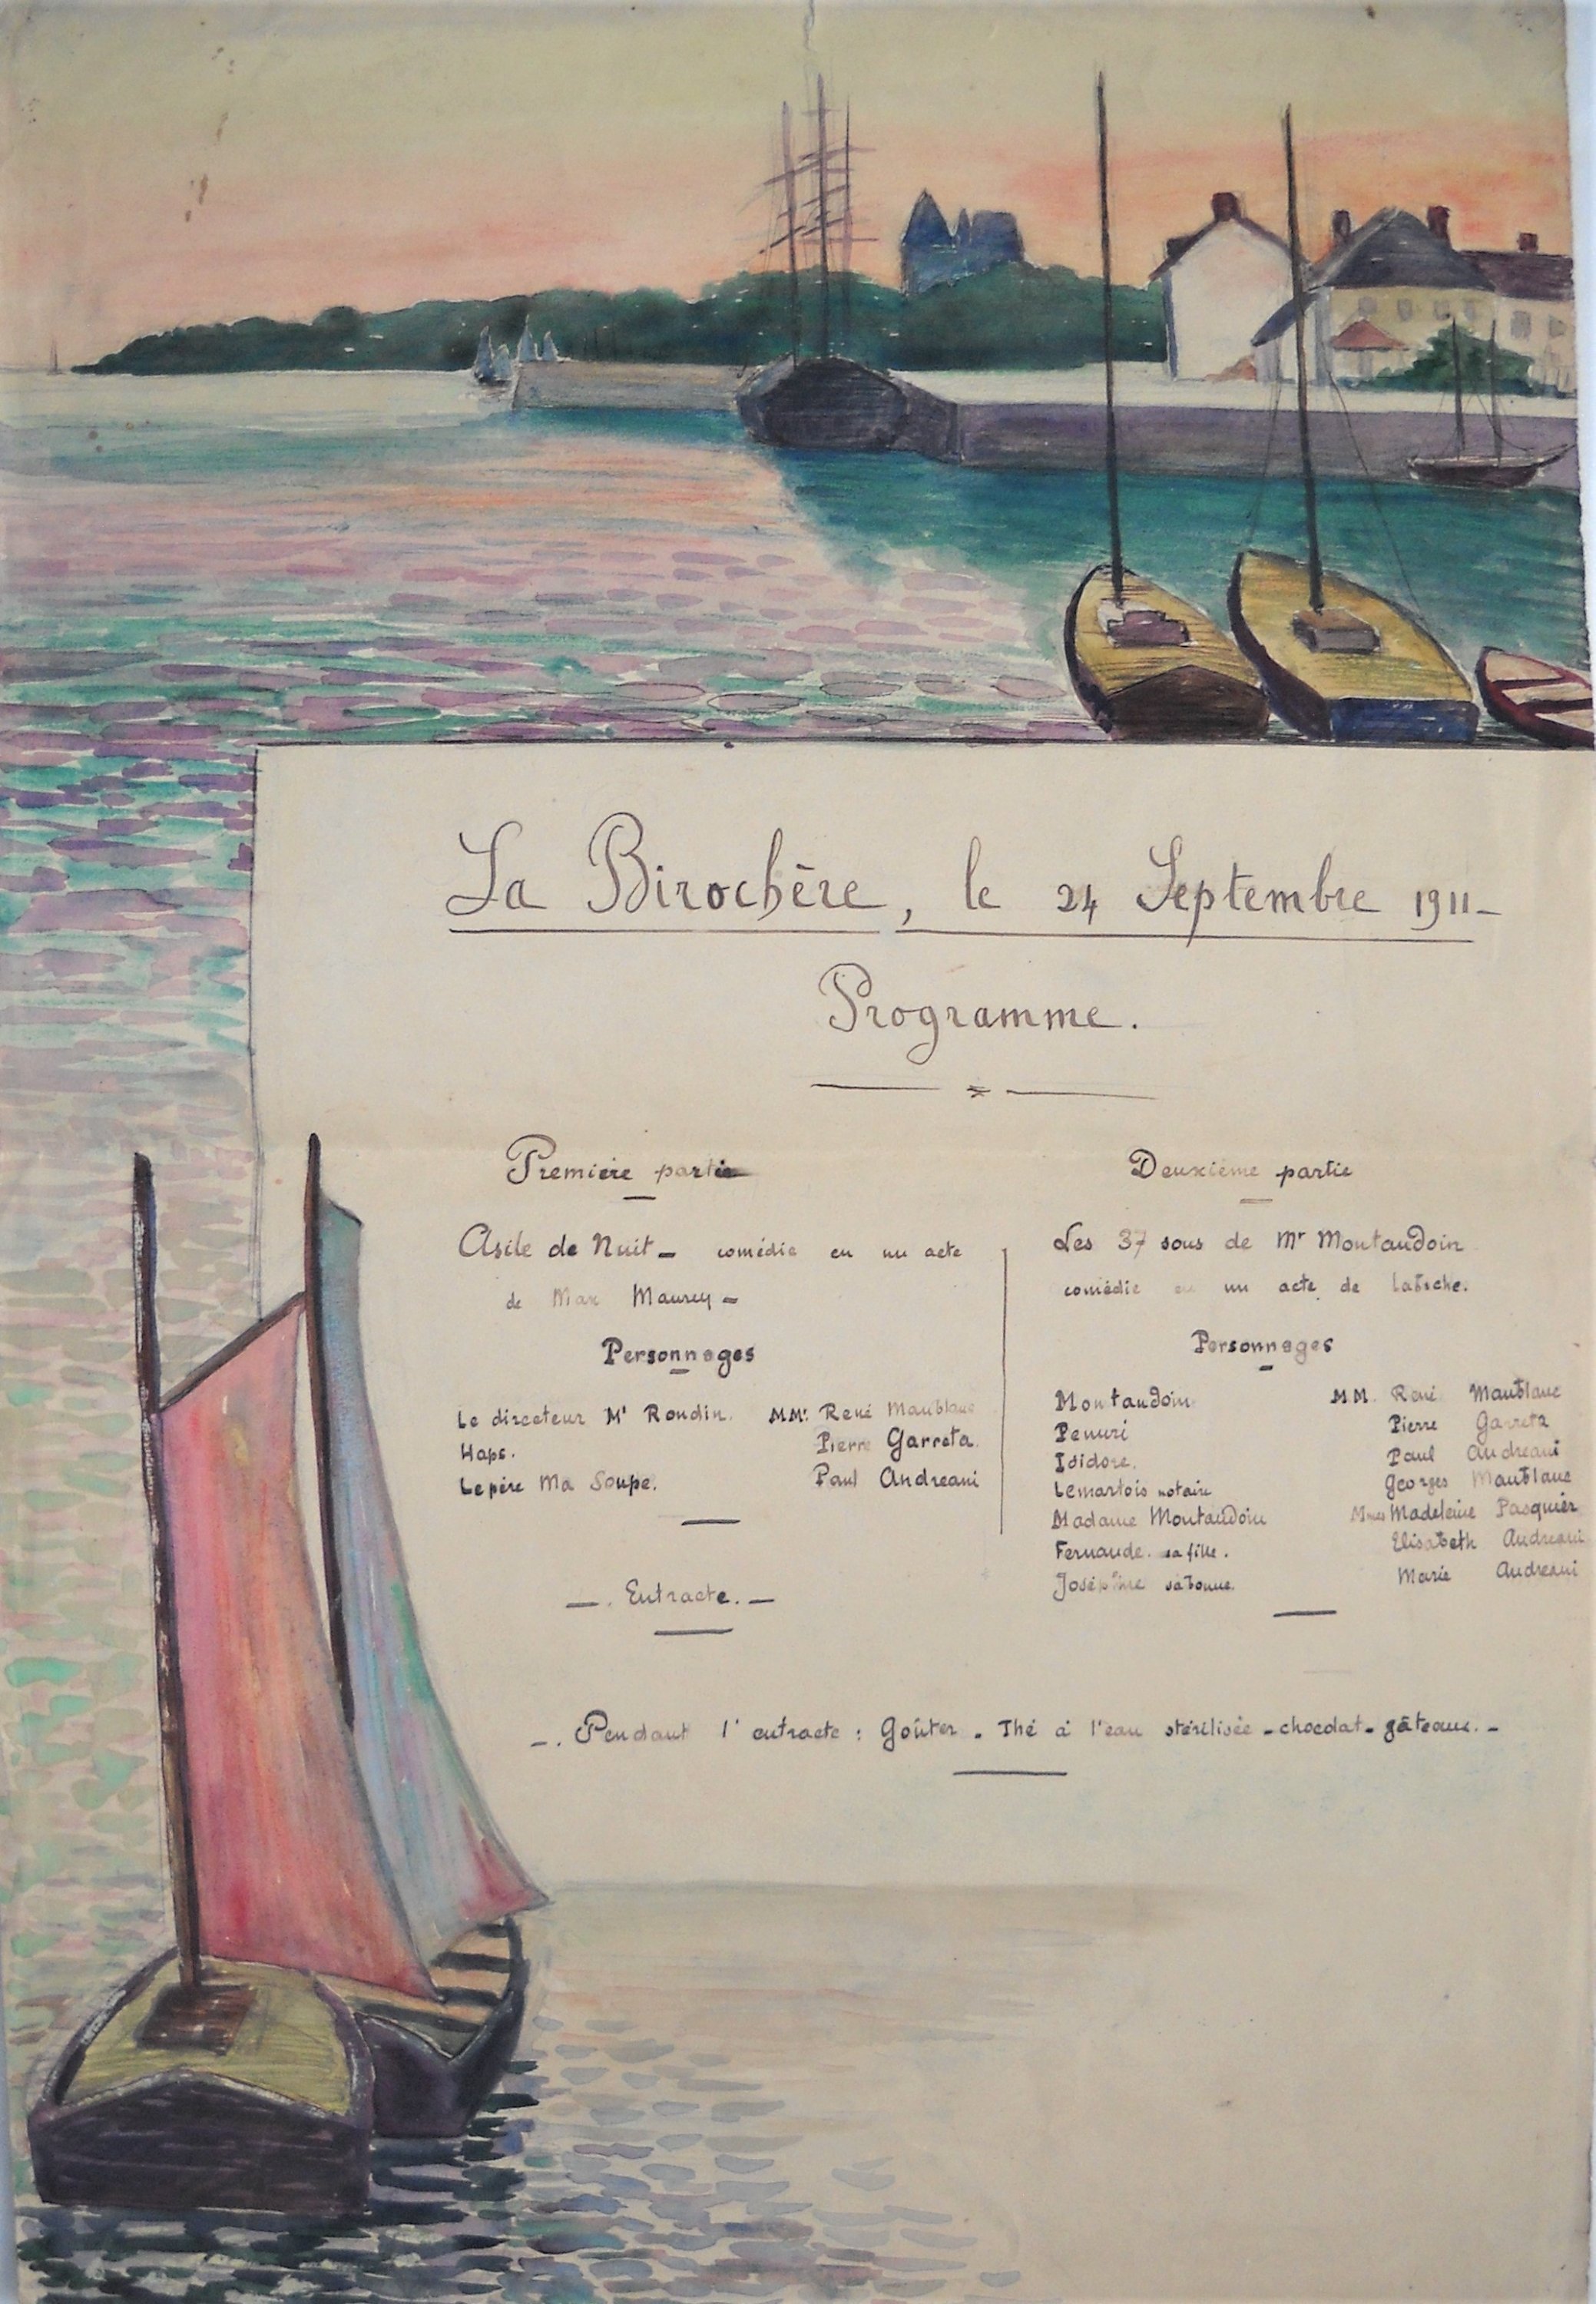 La Birochère, le 24 Septembre 1911_
Programme.
Première partie
Asile de Nuit_ comédie en un acte
de Max Maurey_
Personnages
Le directeur Mr Rondin. MMrs René Maublanc
Haps. Pierre Garreta.
Le père Ma Soupe. Paul Andreani
_. Entracte. _
Deuxième partie
Les 37 sous de Mr Montaudoin
comédie en un acte de Labiche.
Personnages
Montaudoin MM. René Maublanc
Penuri Pierre Garreta
Isidore. Paul Andreani
Lemartois notaire Georges Maublanc
Madame Montaudoin Mmes Madeleine Pasquier
Fernande. sa fille. Elisabeth Andreani
Joséphine sa bonne. Marie Andreani
_. Pendant l'entracte : Goûter. Thé à l'eau stérilisée - chocolat - gâteaux. _